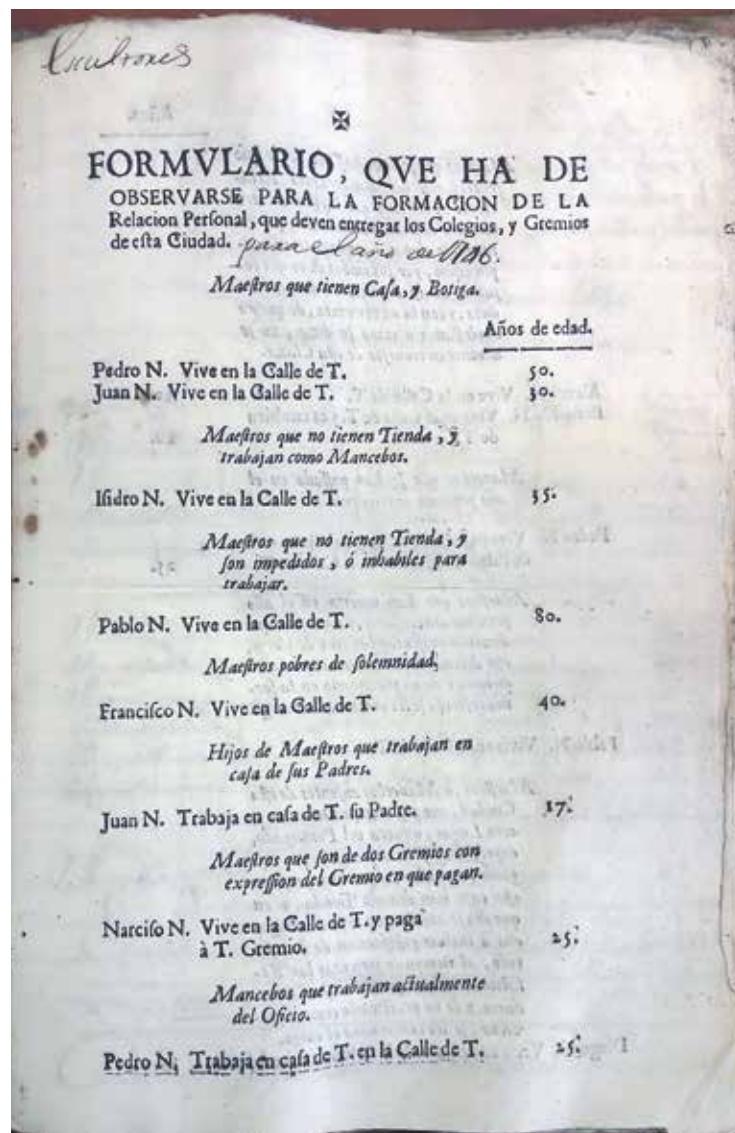 Escultores
✠
FORMVLARIO, QVE HA DE
OBSERVARSE PARA LA FORMACION DE LA
Relacion Perſonal, que deven entregar los Colegios, y Gremios
de eſta Ciudad. para el año de 1746.
Maeſtros que tienen Caſa, y Botiga.
Años de edad.
Pedro N. Vive en la Calle de T. 50.
Juan N. Vive en la Calle de T. 30.
Maeſtros que no tienen Tienda, y
trabajan como Mancebos.
Iſidro N. Vive en la Calle de T. 35.
Maeſtros que no tienen Tienda, y
ſon impedidos, ó inhabiles para
trabajar.
Pablo N. Vive en la Calle de T. 80.
Maeſtros pobres de ſolemnidad,
Franciſco N. Vive en la Calle de T. 40.
Hijos de Maeſtros que trabajan en
caſa de ſus Padres.
Juan N. Trabaja en caſa de T. ſu Padre. 17.
Maeſtros que ſon de dos Gremios con
expreſſion del Gremio en que pagan.
Narciſo N. Vive en la Calle de T. y paga
à T. Gremio. 25.
Mancebos que trabajan actualmente
del Oficio.
Pedro N. Trabaja en caſa de T. en la Calle de T. 25.